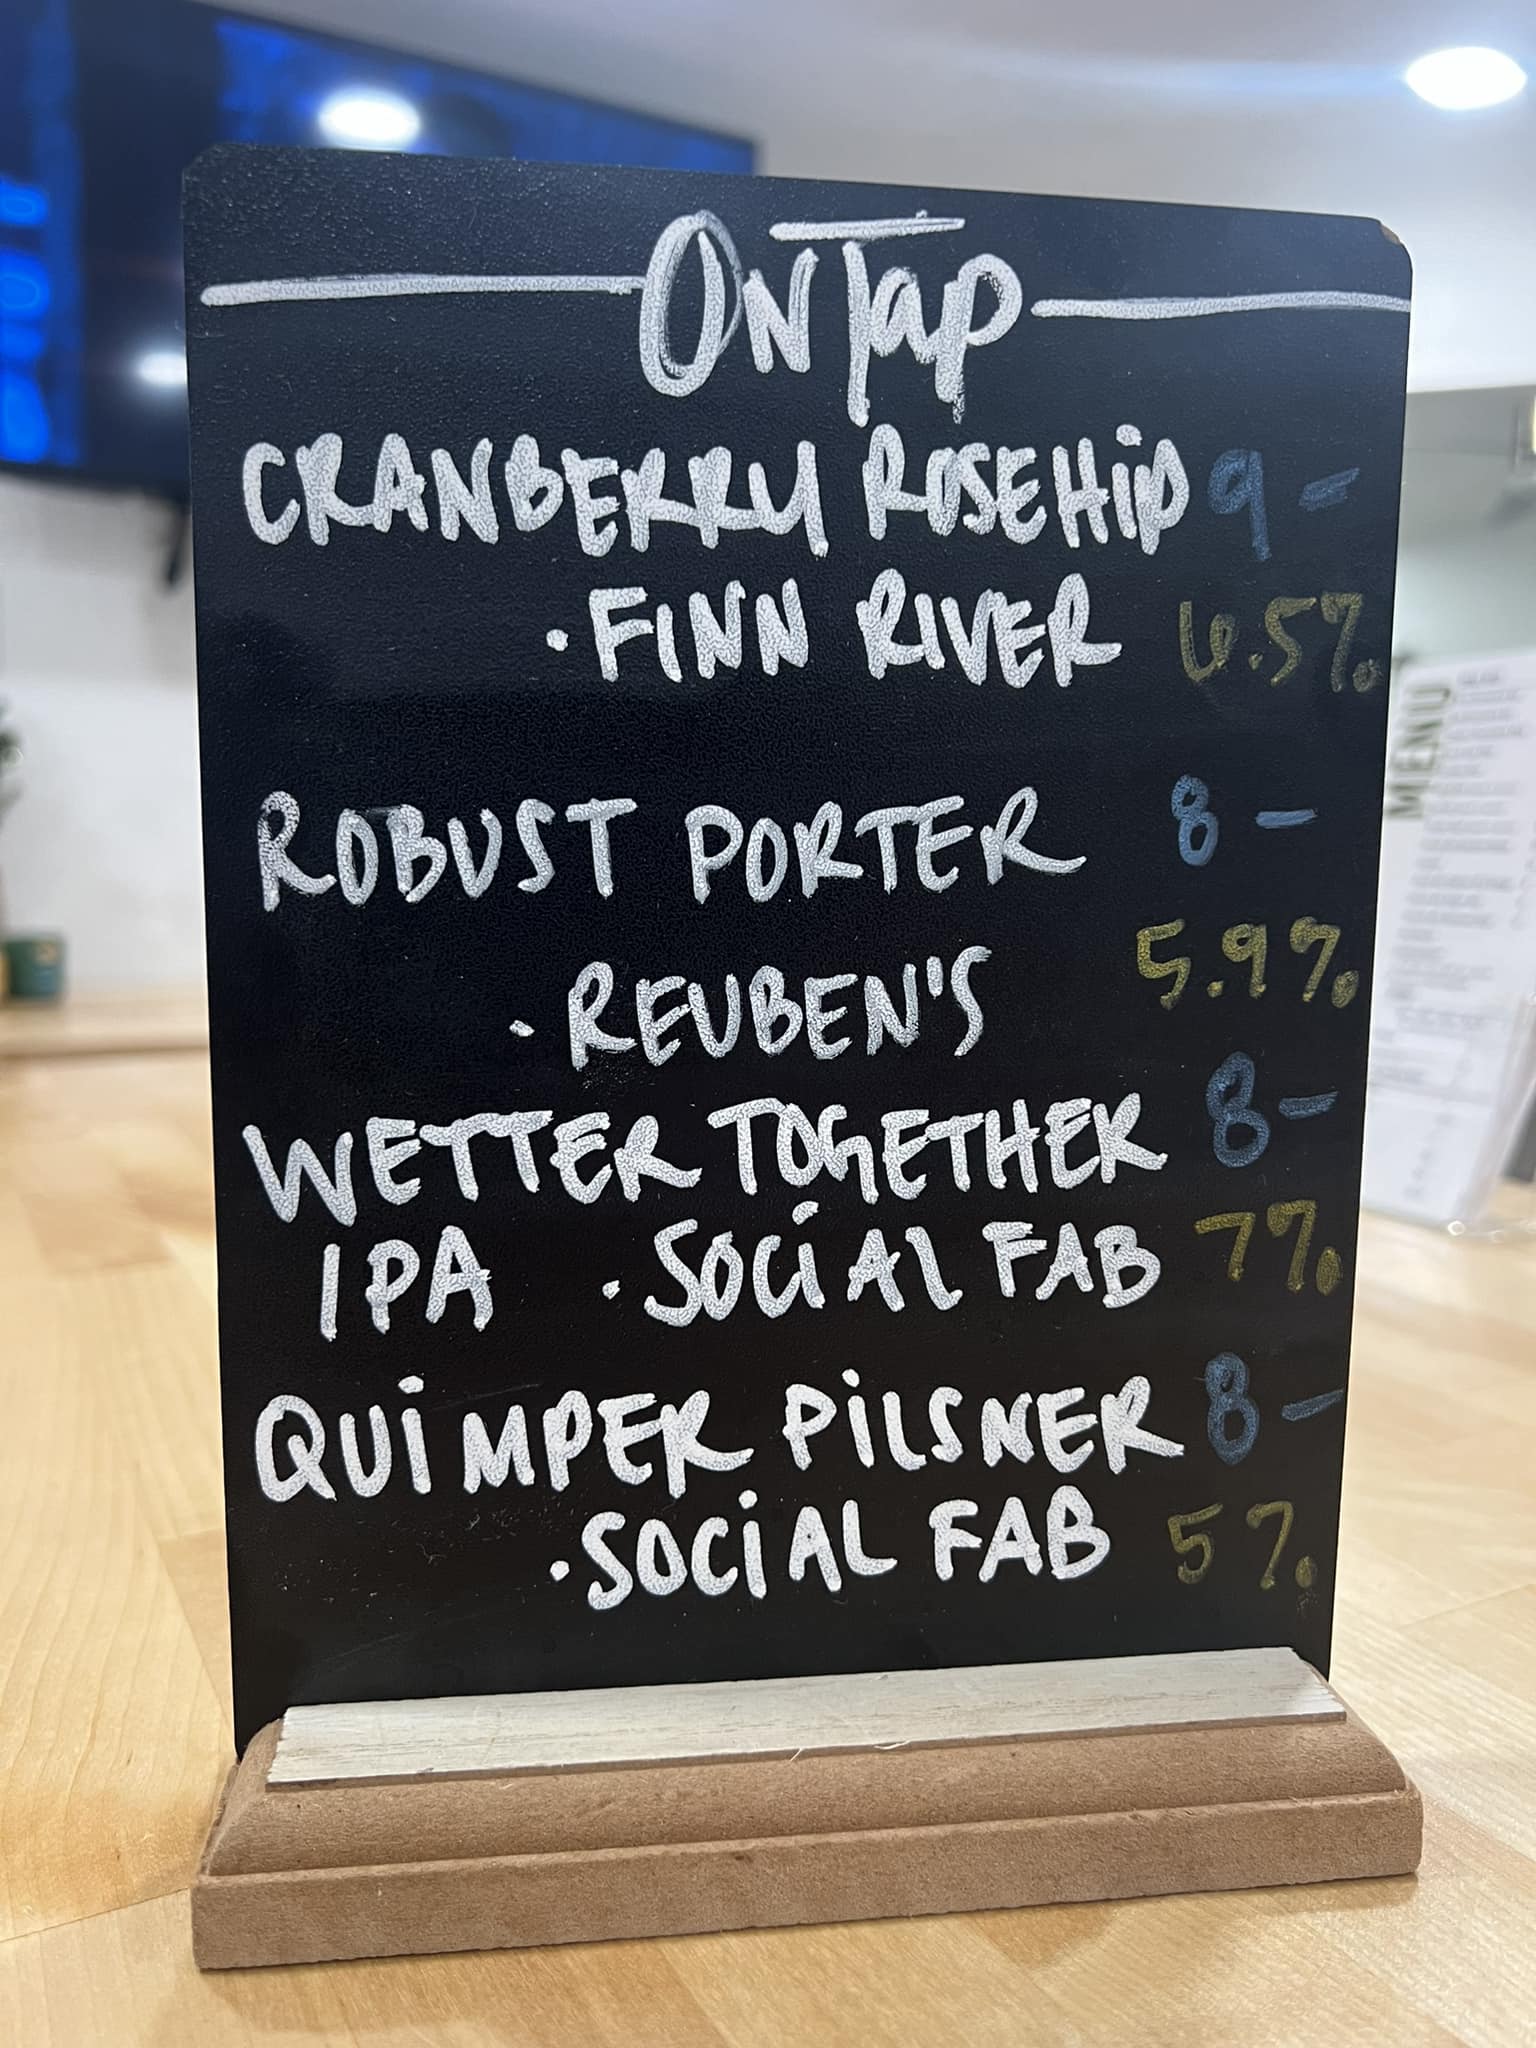 On Tap
CRANBERRY ROSEHIP 9 -
· FINN RIVER 6.5%
ROBUST PORTER 8 -
5.9%
· REUBEN'S
WETTER TOGETHER 8 -
IPA · SOCIAL FAB 7%
QUIMPER PILSNER 8 -
· SOCIAL FAB 5%
MENU